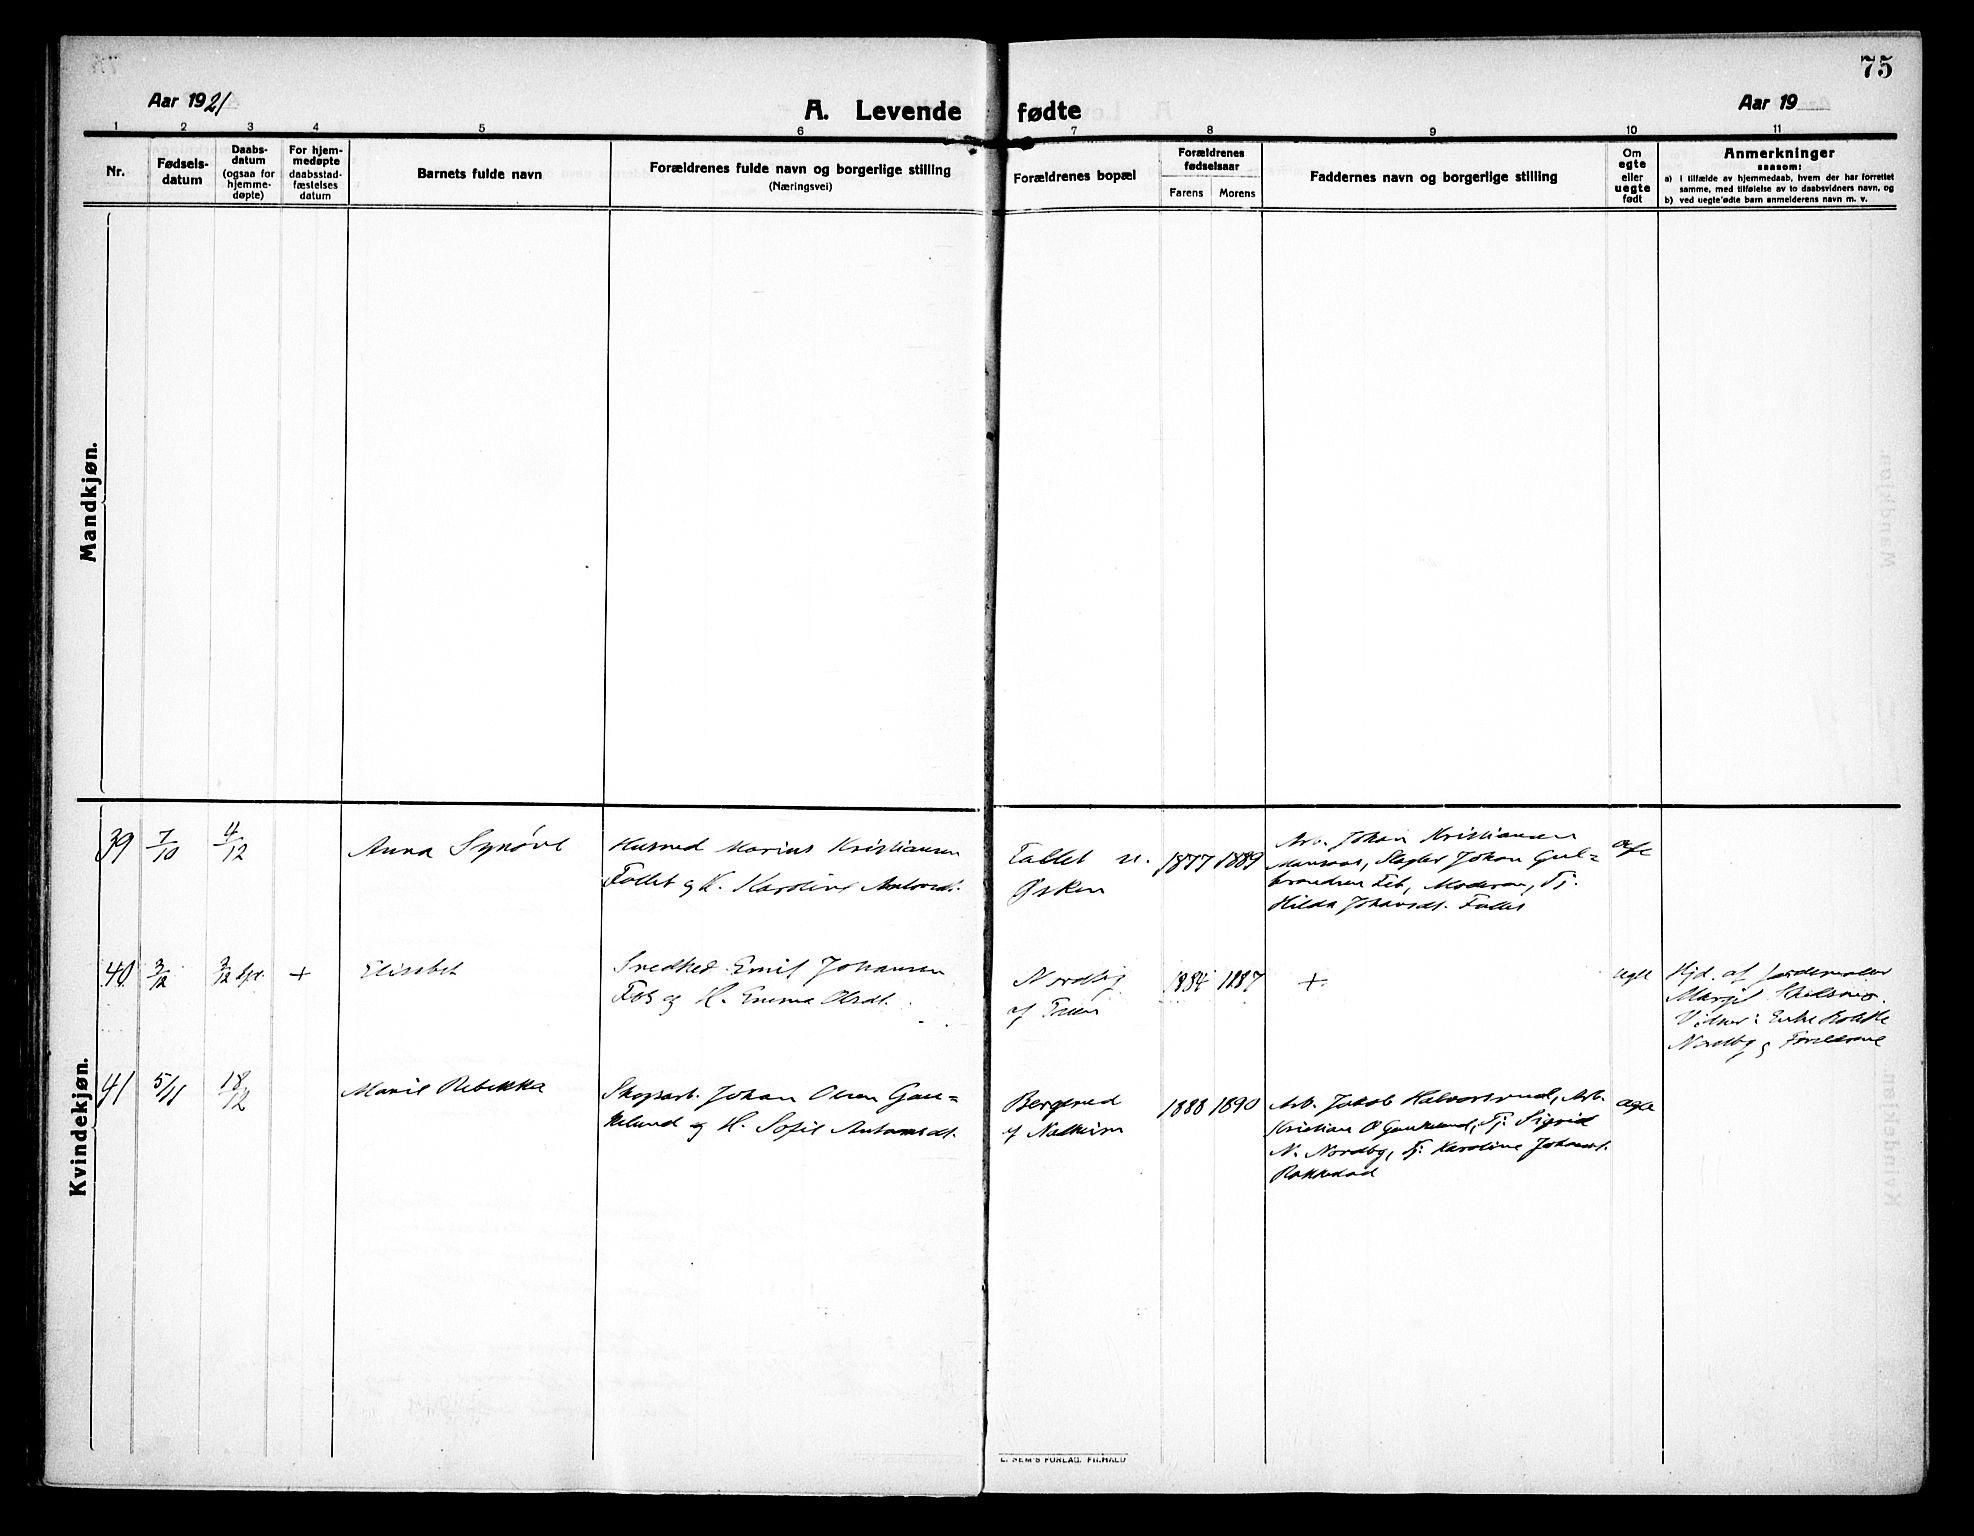 75
Aar 1921
A. Levende fødte
Aar 19
1 2 3 4 5 6 7 8 9 10 11
Nr.
Fødsels-
datum
Daabs-
datum
(ogsaa for
hjemme-
døpte)
For hjem-
medøpte
daabsstad-
fæstelses
datum
Barnets fulde navn
Forældrenes fulde navn og borgerlige stilling
(Næringsvei)
Forældrenes bopæl
Forældrenes
fødselsaar
Farens Morens
Faddernes navn og borgerlige stilling
Om
egte
eller
uegte
født
Anmerkninger
saasom:
a) i tilfælde av hjemmedaab, hvem der har forrettet
samme, med tilføielse av to daabsvidners navn, og
b) ved uegte fødte barn anmelderens navn m. v.
Mandkjøn.
Kvindekjøn.
39 7/10 4/12
Anna Synøve
Husmd Marius Kristiansen
Follet og H. Karoline
n.
Øsken
1877 1889
Arb. Johan Kristiansen
Johan Gul=
Tj.
Hilda Johansdt.
40 3/12 3/12 +
Elisabet
Emil Johansen
og H. Emma Olsdt.
Nordby
af
1884 1887
+
egte
Hjd. af Jordemoder
Margit
Vidner: Enke
Nordby og Foreldrene
41 5/11 18/12
Marie Rebekka
Skogsarb. Johan Olsen Gau=
og H. Sofie Antonsdt.
Bergerud
af
1888 1890
Arb. Jakob Halvorsrud, Arb.
Kristian O Tj. Sigrid
N. Nordby, Tj. Karoline Johansdt.
egte
L. NEM'S FORLAG, FR.HALD